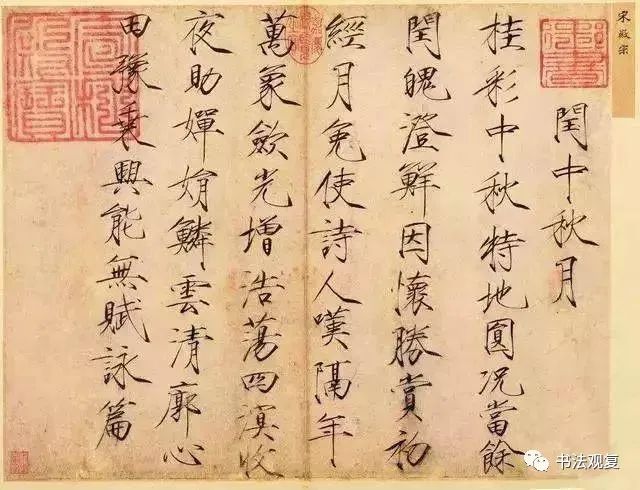 宋徽宗
閏中秋月
桂彩中秋特地圓況當餘
閏魄澄鮮因懷勝賞初
經月免使詩人嘆隔年
萬象歛光增浩蕩四溟收
夜助嬋娟鱗雲清廓心
田豫乘興能無賦詠篇
御書
书法观复